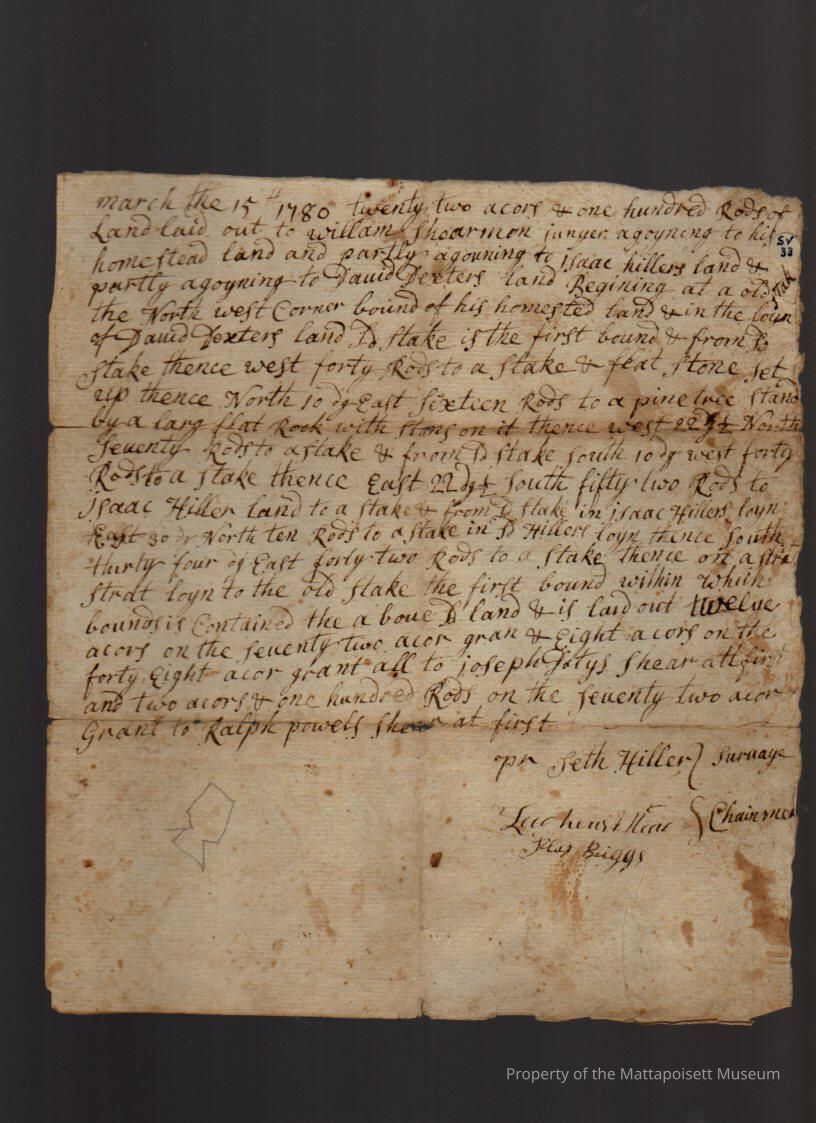 march the 15th 1780 twenty two acors & one hundred Rods of
Land laid out to willam Shearmon junyer agoyning to his
SV
33
homestead land and partly agouning to jsaac hillers land &
partly agoyning to David Dexters land Begining at a old stake
the North west Corner bound of his homested land & in the loyn
of David Dexters land sd stake is the first bound & from sd
stake thence west forty Rods to a stake & flat stone set
up thence North 10 dg East Sixteen Rods to a pine tree stand
by a larg flat Rock with stons on it thence west 22 dg ½ North
Seventy Rods to a stake & from sd stake south 10 dg west forty
Rods to a stake thence East 22 dg ½ South fifty two Rods to
jsaac Hiller land to a stake & from sd stake in jsaac Hillers loyn
East 30 dg North ten Rods to a stake in sd Hillers loyn thence South
thurty four dg East forty two Rods to a stake thence on a
strat loyn to the old stake the first bound within which
bounds is Contained the a boue sd land & is laid out twelve
acors on the seventy two acor gran & Eight acors on the
forty Eight acor grant all to joseph shear att first
and two acors & one hundred Rods on the seventy two acor
Grant to Ralph powels shear at first
pr Seth Hiller } Survaye
} Chainmen
Briggs
Property of the Mattapoisett Museum